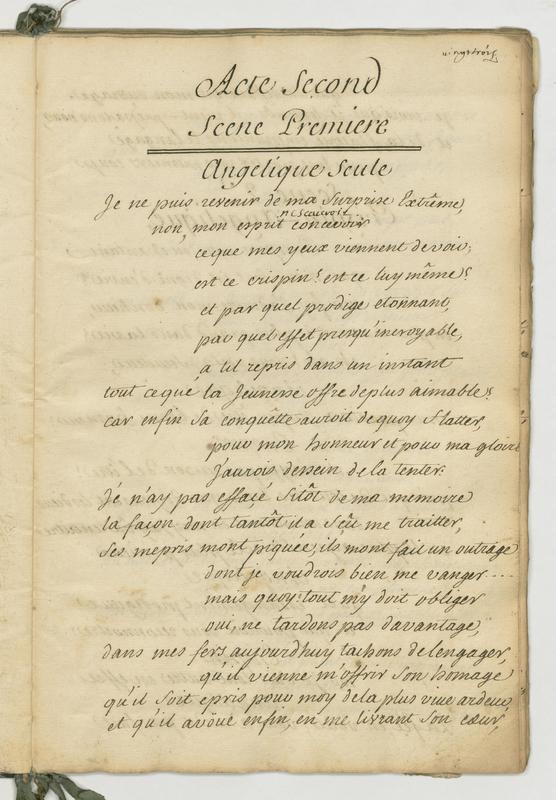 vingt trois
Acte Second
Scene Premiere
Angelique Seule
Je ne puis revenir de ma Surprise Extrême,
ne Scauroit
non, mon esprit concevoir
ce que mes yeux viennent de voir;
est ce crispin? est ce luy même?
et par quel prodige etonnant,
par quel effet presqu'incroyable,
a til repris dans un instant
tout ce que la Jeunesse offre de plus aimable?
car enfin Sa conquêtte auroit de quoy flatter,
pour mon honneur et pour ma gloire
J'aurois dessein de la tenter.
Je n'ay pas effacé Sitôt de ma memoire
la façon dont tantôt il a Sçû me traitter,
Ses mepris mont piquée, ils mont fait un outrage
dont je voudrois bien me vanger....
mais quoy! tout m'y doit obliger
oui, ne tardons pas davantage,
dans mes fers aujourdhuy tachons de lengager,
qu'il vienne m'offrir Son homage
qu'il Soit epris pour moy de la plus vive ardeur,
et qu'il avoüe enfin, en me livrant Son cœur,